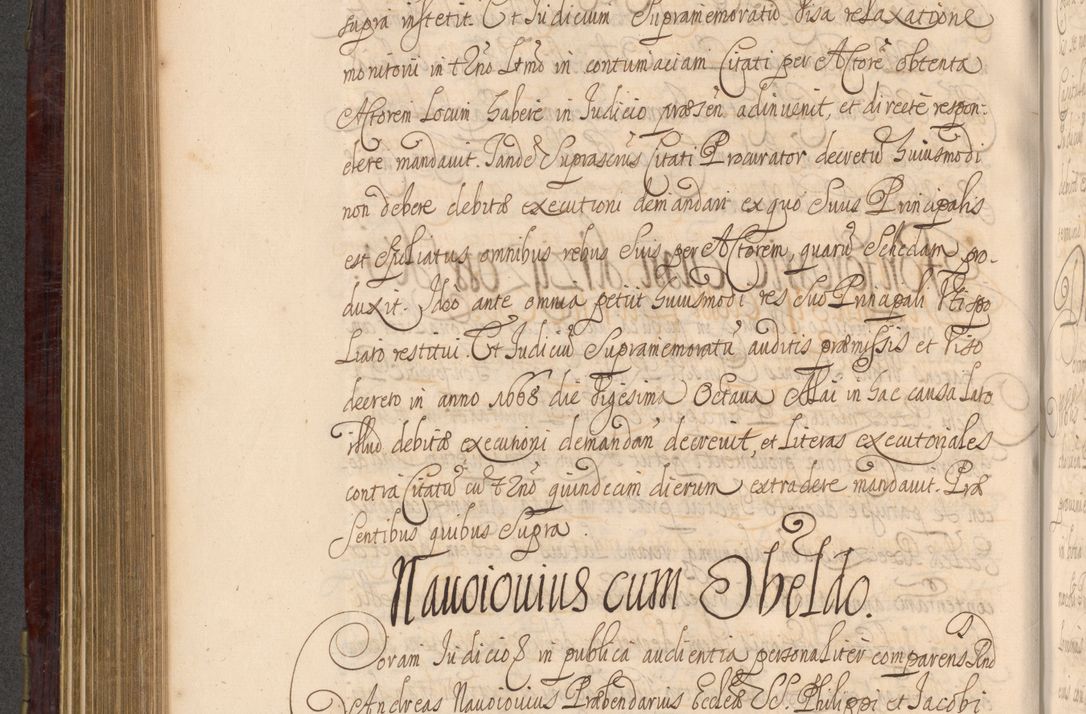 supra institit. Et Judicium Supramemoratū visa relaxatione
monitorii in tr̄no Ltmō in contumaciam Citati per Actorē obtenta
Actorem Locum habere in Judicio præsen̄ adinvenit, et directè respon-
dere mandavit. Tandē Suprascrīs Citati Procurator decretū huiusmodi
non debere debitæ executioni demandari ex quo Suus Principalis
est spoliatus omnibus rebus Suis per Actorem, quarū Schedam pro-
duxit. Ideò ante omnia petiit huiusmodi res Suo Principali uti spo
liato restitui. Et Judiciū Supramemoratū auditis præmissis et viso
decreto in anno 1668 die vigesima Octava Mai in hac causa lato
illud debitæ executioni demandari decrevit, et Literas executoriales
contra Citatū cū tr̄no quindecim dierum extradere mandavit. Præ
sentibus quibus Supra
Navoiovius cum Obeldo.
Coram Judicio in publica audientia personaliter comparens Rnd
Andreas Navoiovius Præbendarius Ecclæ SS. Philippi et Jacobi